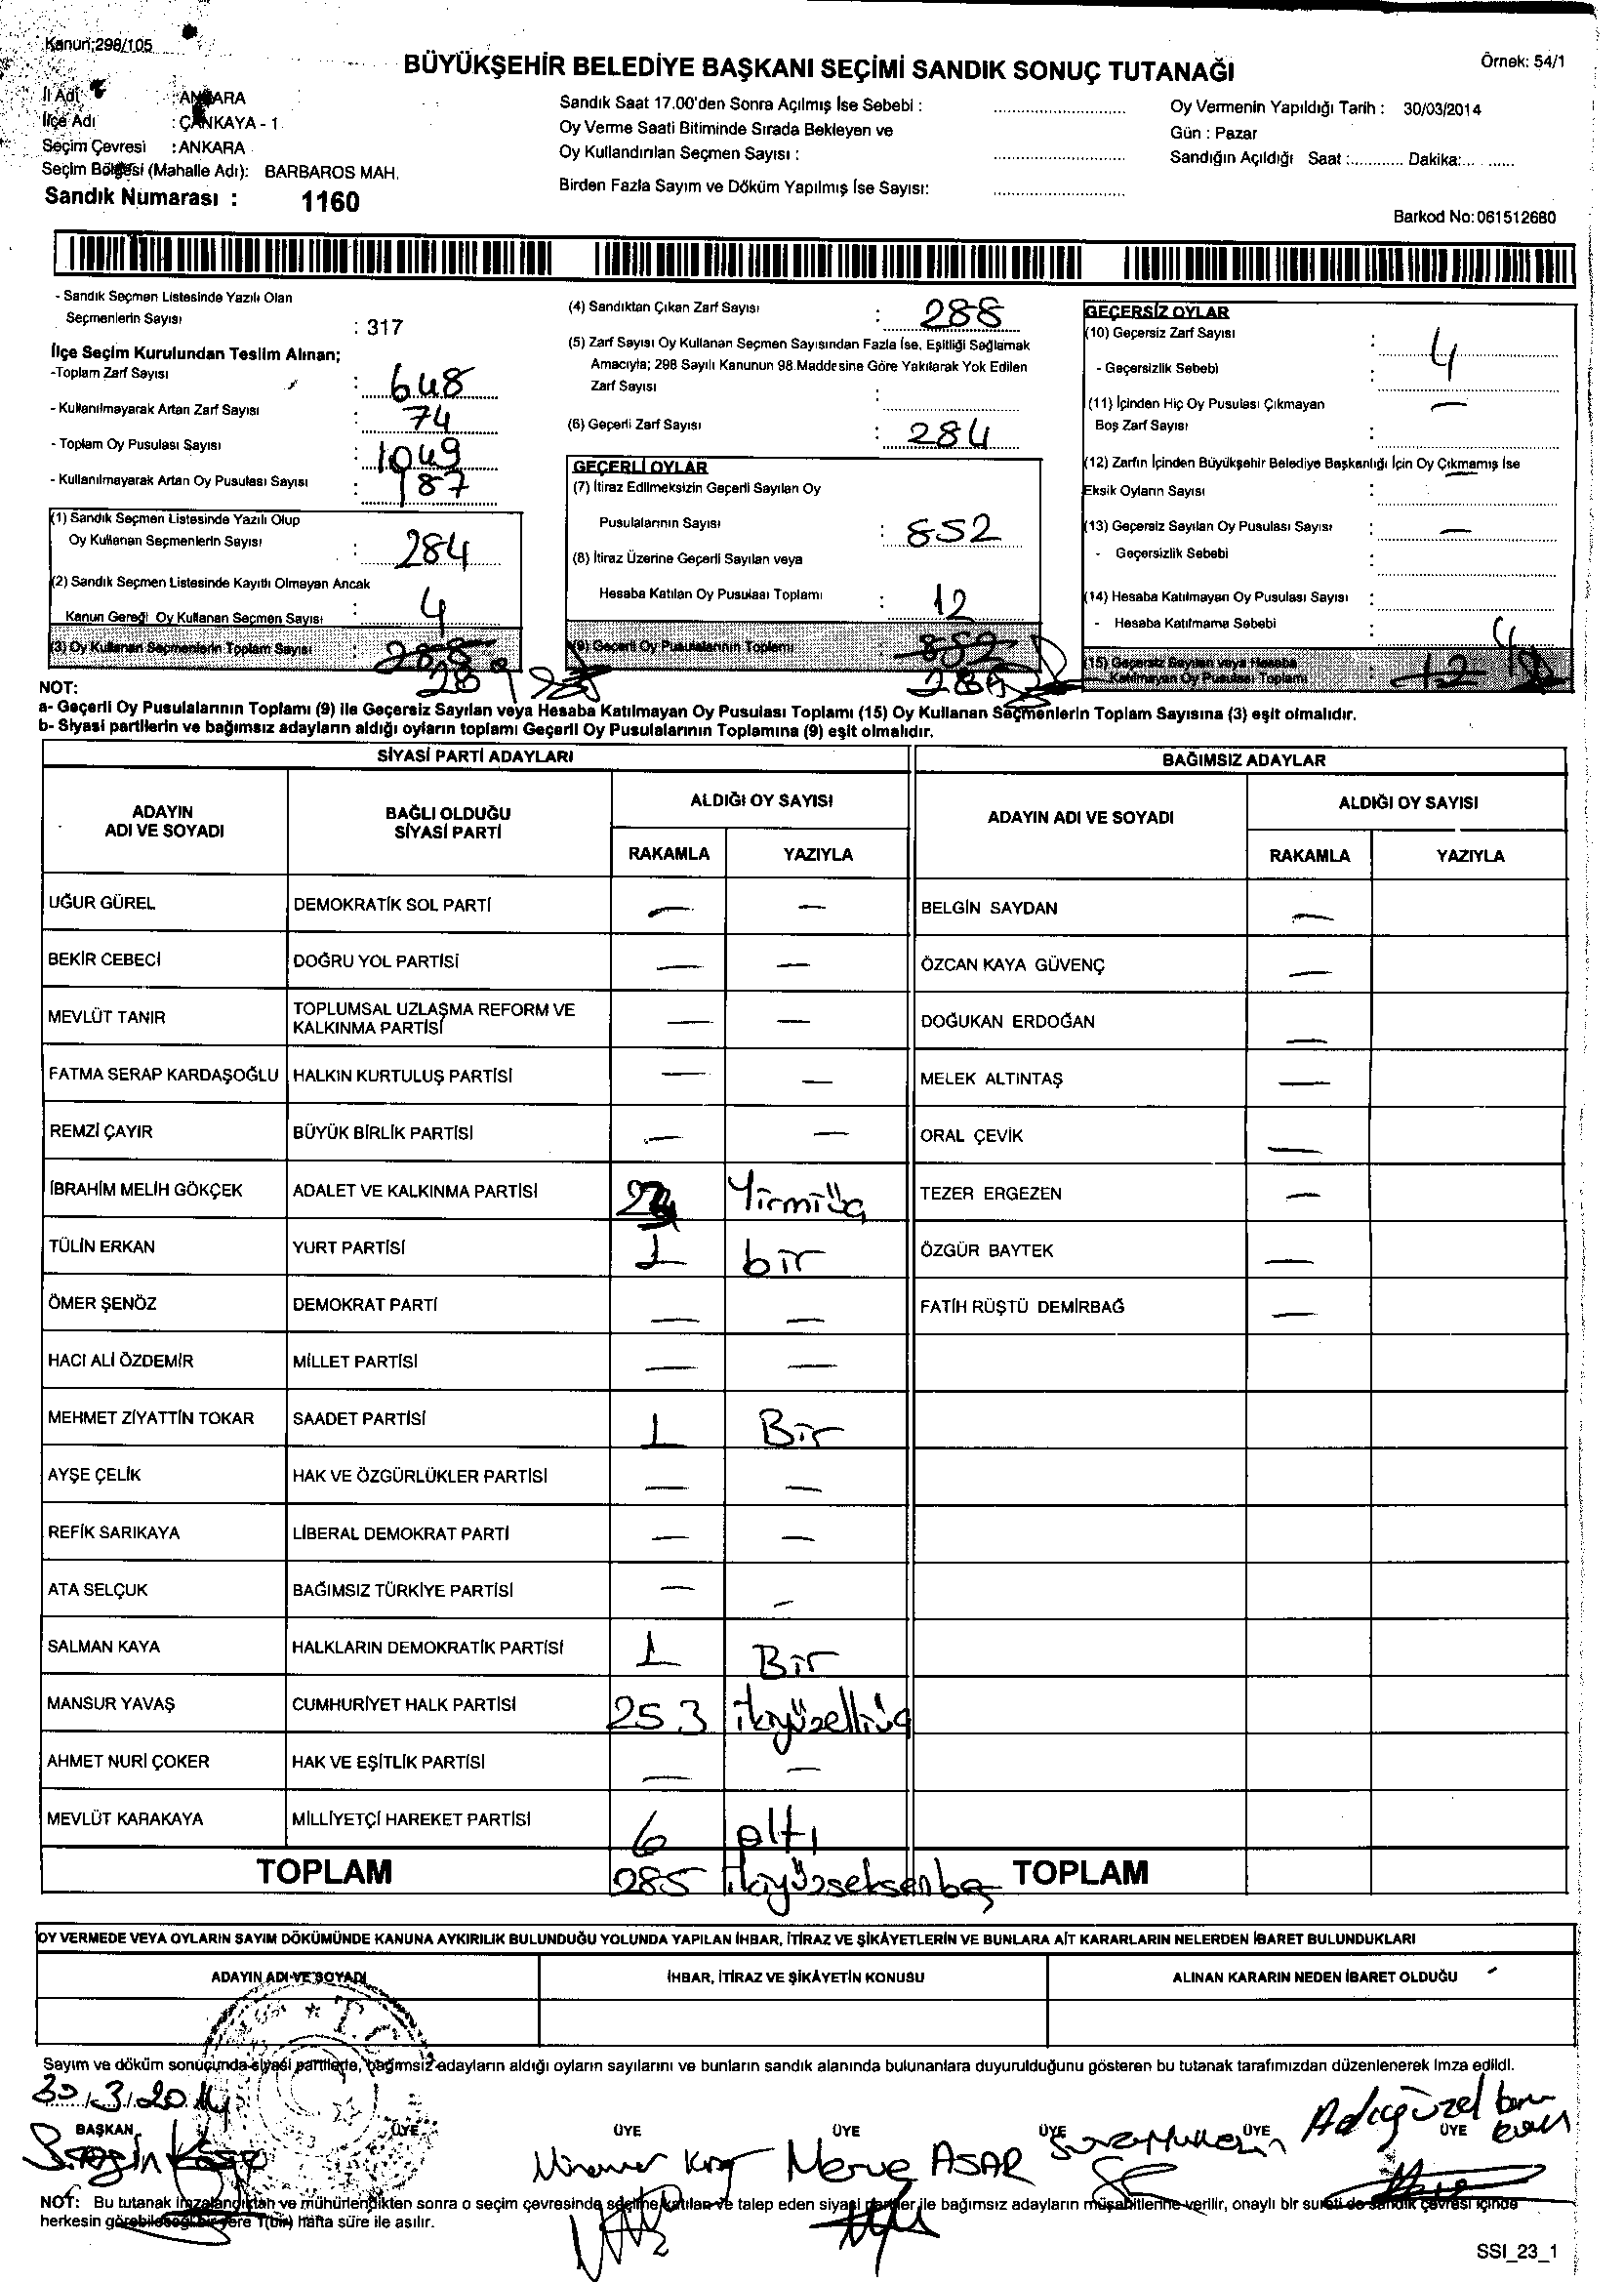 Kanun;298/105
BÜYÜKŞEHİR BELEDİYE BAŞKANI SEÇİMİ SANDIK SONUÇ TUTANAĞI
Örnek: 54/1
İl Adı : ANKARA
İlçe Adı : ÇANKAYA - 1
Seçim Çevresi : ANKARA
Seçim Bölgesi (Mahalle Adı): BARBAROS MAH.
Sandık Numarası : 1160
Sandık Saat 17.00'den Sonra Açılmış İse Sebebi :
Oy Verme Saati Bitiminde Sırada Bekleyen ve
Oy Kullandırılan Seçmen Sayısı :
Birden Fazla Sayım ve Döküm Yapılmış İse Sayısı:
Oy Vermenin Yapıldığı Tarih : 30/03/2014
Gün : Pazar
Sandığın Açıldığı Saat :........... Dakika:... ......
Barkod No: 061512680
- Sandık Seçmen Listesinde Yazılı Olan
Seçmenlerin Sayısı : 317
İlçe Seçim Kurulundan Teslim Alınan;
-Toplam Zarf Sayısı : 648
- Kullanılmayarak Artan Zarf Sayısı : 74
- Toplam Oy Pusulası Sayısı : 1049
- Kullanılmayarak Artan Oy Pusulası Sayısı : 187
(1) Sandık Seçmen Listesinde Yazılı Olup
Oy Kullanan Seçmenlerin Sayısı : 284
(2) Sandık Seçmen Listesinde Kayıtlı Olmayan Ancak
Kanun Gereği Oy Kullanan Seçmen Sayısı : 4
(3) Oy Kullanan Seçmenlerin Toplam Sayısı : 288
289
(4) Sandıktan Çıkan Zarf Sayısı : 288
(5) Zarf Sayısı Oy Kullanan Seçmen Sayısından Fazla İse, Eşitliği Sağlamak
Amacıyla; 298 Sayılı Kanunun 98.Maddesine Göre Yakılarak Yok Edilen
Zarf Sayısı :
(6) Geçerli Zarf Sayısı : 284
GEÇERLİ OYLAR
(7) İtiraz Edilmeksizin Geçerli Sayılan Oy
Pusulalarının Sayısı : 852
(8) İtiraz Üzerine Geçerli Sayılan veya
Hesaba Katılan Oy Pusulası Toplamı : 12
(9) Geçerli Oy Pusulalarının Toplamı : 852
GEÇERSİZ OYLAR
(10) Geçersiz Zarf Sayısı : 4
- Geçersizlik Sebebi :
(11) İçinden Hiç Oy Pusulası Çıkmayan —
Boş Zarf Sayısı :
(12) Zarfın İçinden Büyükşehir Belediye Başkanlığı İçin Oy Çıkmamış İse
Eksik Oyların Sayısı :
(13) Geçersiz Sayılan Oy Pusulası Sayısı : —
- Geçersizlik Sebebi :
(14) Hesaba Katılmayan Oy Pusulası Sayısı :
- Hesaba Katılmama Sebebi : 4
(15) Geçersiz Sayılan veya Hesaba
Katılmayan Oy Pusulası Toplamı : 12
NOT:
a- Geçerli Oy Pusulalarının Toplamı (9) ile Geçersiz Sayılan veya Hesaba Katılmayan Oy Pusulası Toplamı (15) Oy Kullanan Seçmenlerin Toplam Sayısına (3) eşit olmalıdır.
b- Siyasi partilerin ve bağımsız adayların aldığı oyların toplamı Geçerli Oy Pusulalarının Toplamına (9) eşit olmalıdır.
SİYASİ PARTİ ADAYLARI
ADAYIN
ADI VE SOYADI
BAĞLI OLDUĞU
SİYASİ PARTİ
ALDIĞI OY SAYISI
RAKAMLA YAZIYLA
UĞUR GÜREL DEMOKRATİK SOL PARTİ — —
BEKİR CEBECİ DOĞRU YOL PARTİSİ — —
MEVLÜT TANIR TOPLUMSAL UZLAŞMA REFORM VE KALKINMA PARTİSİ — —
FATMA SERAP KARDAŞOĞLU HALKIN KURTULUŞ PARTİSİ — —
REMZİ ÇAYIR BÜYÜK BİRLİK PARTİSİ — —
İBRAHİM MELİH GÖKÇEK ADALET VE KALKINMA PARTİSİ Yirmiüç
TÜLİN ERKAN YURT PARTİSİ 1 bir
ÖMER ŞENÖZ DEMOKRAT PARTİ — —
HACI ALİ ÖZDEMİR MİLLET PARTİSİ — —
MEHMET ZİYATTİN TOKAR SAADET PARTİSİ 1 Bir
AYŞE ÇELİK HAK VE ÖZGÜRLÜKLER PARTİSİ — —
REFİK SARIKAYA LİBERAL DEMOKRAT PARTİ — —
ATA SELÇUK BAĞIMSIZ TÜRKİYE PARTİSİ — —
SALMAN KAYA HALKLARIN DEMOKRATİK PARTİSİ 1 Bir
MANSUR YAVAŞ CUMHURİYET HALK PARTİSİ 253 ikiyüzelliüç
AHMET NURİ ÇOKER HAK VE EŞİTLİK PARTİSİ — —
MEVLÜT KARAKAYA MİLLİYETÇİ HAREKET PARTİSİ 6 altı
TOPLAM 285 ikiyüzseksenbeş
BAĞIMSIZ ADAYLAR
ADAYIN ADI VE SOYADI
ALDIĞI OY SAYISI
RAKAMLA YAZIYLA
BELGİN SAYDAN —
ÖZCAN KAYA GÜVENÇ —
DOĞUKAN ERDOĞAN —
MELEK ALTINTAŞ —
ORAL ÇEVİK —
TEZER ERGEZEN —
ÖZGÜR BAYTEK —
FATİH RÜŞTÜ DEMİRBAĞ —
TOPLAM
OY VERMEDE VEYA OYLARIN SAYIM DÖKÜMÜNDE KANUNA AYKIRILIK BULUNDUĞU YOLUNDA YAPILAN İHBAR, İTİRAZ VE ŞİKÂYETLERİN VE BUNLARA AİT KARARLARIN NELERDEN İBARET BULUNDUKLARI
ADAYIN ADI VE SOYADI İHBAR, İTİRAZ VE ŞİKÂYETİN KONUSU ALINAN KARARIN NEDEN İBARET OLDUĞU
Sayım ve döküm sonucunda siyasi partilerle, bağımsız adayların aldığı oyların sayılarını ve bunların sandık alanında bulunanlara duyurulduğunu gösteren bu tutanak tarafımızdan düzenlenerek imza edildi.
30/3/2014
BAŞKAN ÜYE ÜYE ÜYE ÜYE ÜYE ÜYE
Merve ASAR
Adıgüzel
NOT: Bu tutanak imzalandıktan ve mühürlendikten sonra o seçim çevresinde seçime katılan ve talep eden siyasi partiler ile bağımsız adayların müşahitlerine verilir, onaylı bir sureti de sandık çevresi içinde
herkesin görebileceği bir yere 1(bir) hafta süre ile asılır.
SSI_23_1